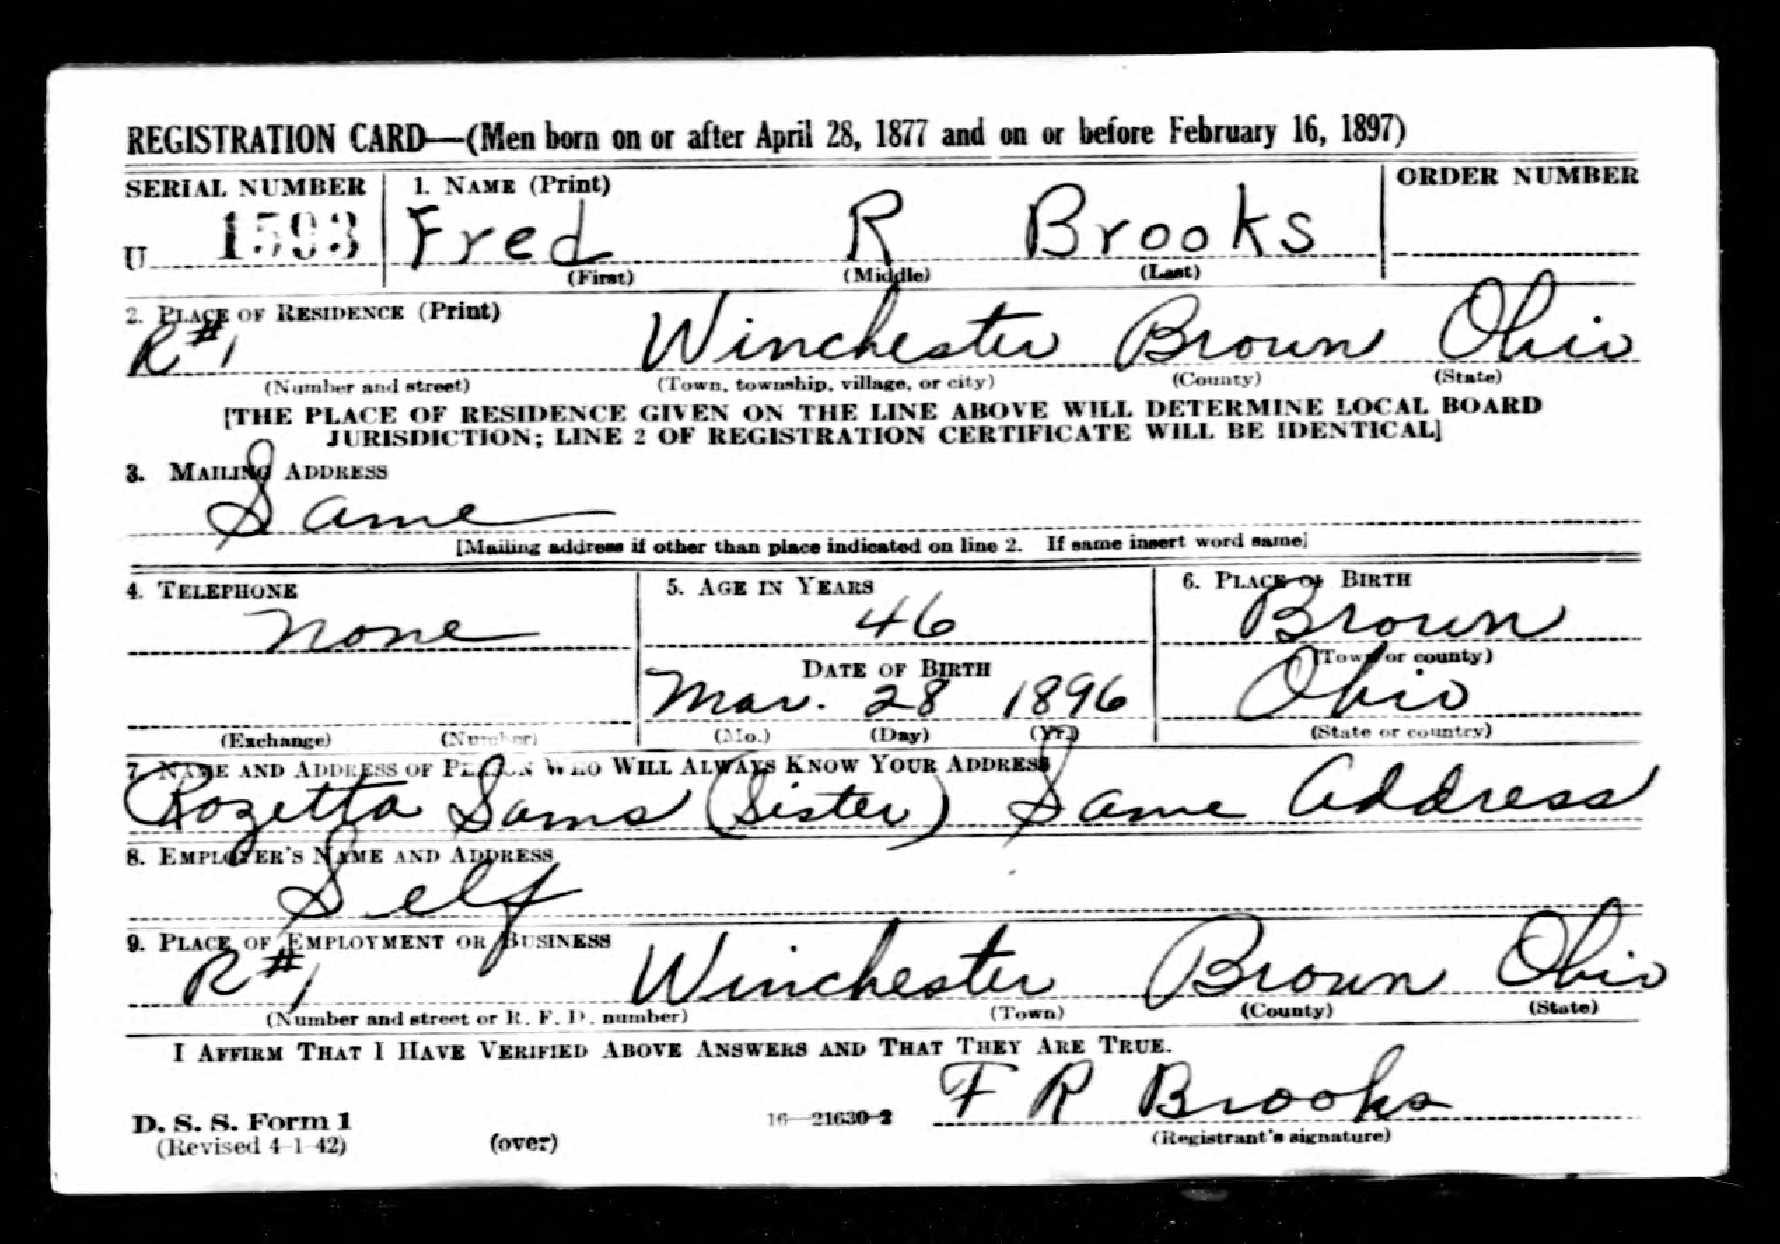 REGISTRATION CARD—(Men born on or after April 28, 1877 and on or before February 16, 1897)
SERIAL NUMBER 1. NAME (Print) ORDER NUMBER
U 1593 Fred R Brooks
(First) (Middle) (Last)
2. PLACE OF RESIDENCE (Print)
R#1 Winchester Brown Ohio
(Number and street) (Town, township, village, or city) (County) (State)
[THE PLACE OF RESIDENCE GIVEN ON THE LINE ABOVE WILL DETERMINE LOCAL BOARD
JURISDICTION; LINE 2 OF REGISTRATION CERTIFICATE WILL BE IDENTICAL]
3. MAILING ADDRESS
Same
[Mailing address if other than place indicated on line 2. If same insert word same]
4. TELEPHONE 5. AGE IN YEARS 6. PLACE OF BIRTH
none 46 Brown
DATE OF BIRTH (Town or county)
Mar. 28 1896 Ohio
(Exchange) (Number) (Mo.) (Day) (Yr.) (State or country)
7. NAME AND ADDRESS OF PERSON WHO WILL ALWAYS KNOW YOUR ADDRESS
Rozetta Sams (Sister) Same address
8. EMPLOYER'S NAME AND ADDRESS
Self
9. PLACE OF EMPLOYMENT OR BUSINESS
R#1 Winchester Brown Ohio
(Number and street or R. F. D. number) (Town) (County) (State)
I AFFIRM THAT I HAVE VERIFIED ABOVE ANSWERS AND THAT THEY ARE TRUE.
F R Brooks
D. S. S. Form 1 16—21630-2
(Revised 4-1-42) (over) (Registrant's signature)